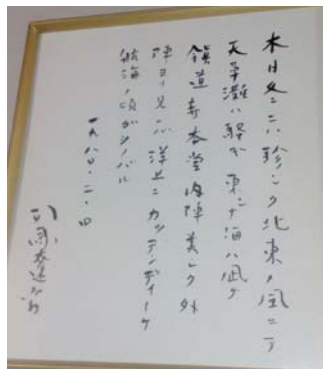 本日冬ニハ珍シク北東ノ風ニテ
天草灘ハ騒ギ東シナ海ハ凪グ
鎮道寺本堂内陣美シク外
陣ヨリ見レバ洋上ニカッテンディーケ
航海ノ頃ガシノバル
一九八〇・二・四
司馬遼太郎